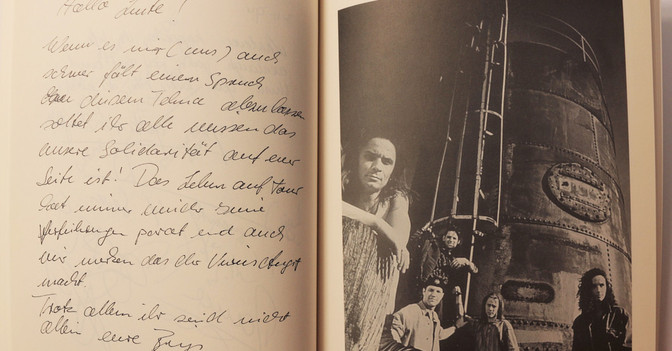 Hallo Leute!
Wenn es mir (uns) auch
schwer fält einen Spruch
diesem Tehma
soltet ihr alle wissen das
unsere Solidarität auf eurer
Seite ist! Das Leben auf Tour
hat immer wieder seine
Verführungen parat und auch
wir merken das der Virus Angst
macht.
Trotz allem ihr seid nicht
allein eure